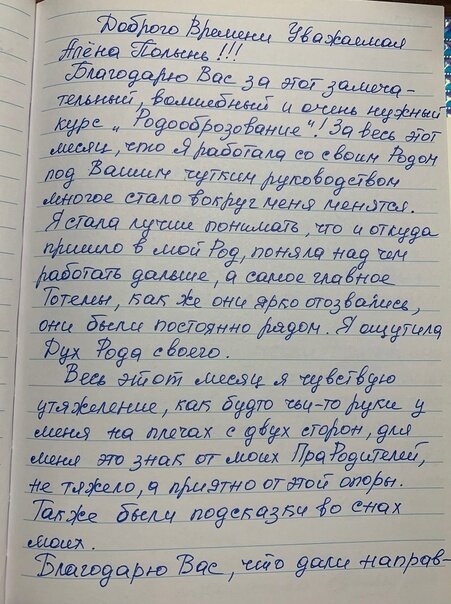 Доброго Времени Уважаемая
Алёна Полынь!!!
Благодарю Вас за этот замеча-
тельный, волшебный и очень нужный
курс „Родооброзование"! За весь этот
месяц, что я работала со своим Родом
под Вашим чутким руководством
многое стало вокруг меня менятся.
Я стала лучше понимать, что и откуда
пришло в мой Род, поняла над чем
работать дальше, а самое главное
Тотемы, как же они ярко отозвались,
они были постоянно рядом. Я ощутила
Дух Рода своего.
Весь этот месяц я чувствую
утяжеление, как будто чьи-то руки у
меня на плечах с двух сторон, для
меня это знак от моих ПраРодителей,
не тяжело, а приятно от этой опоры.
Также были подсказки во снах
моих.
Благодарю Вас, что дали направ-